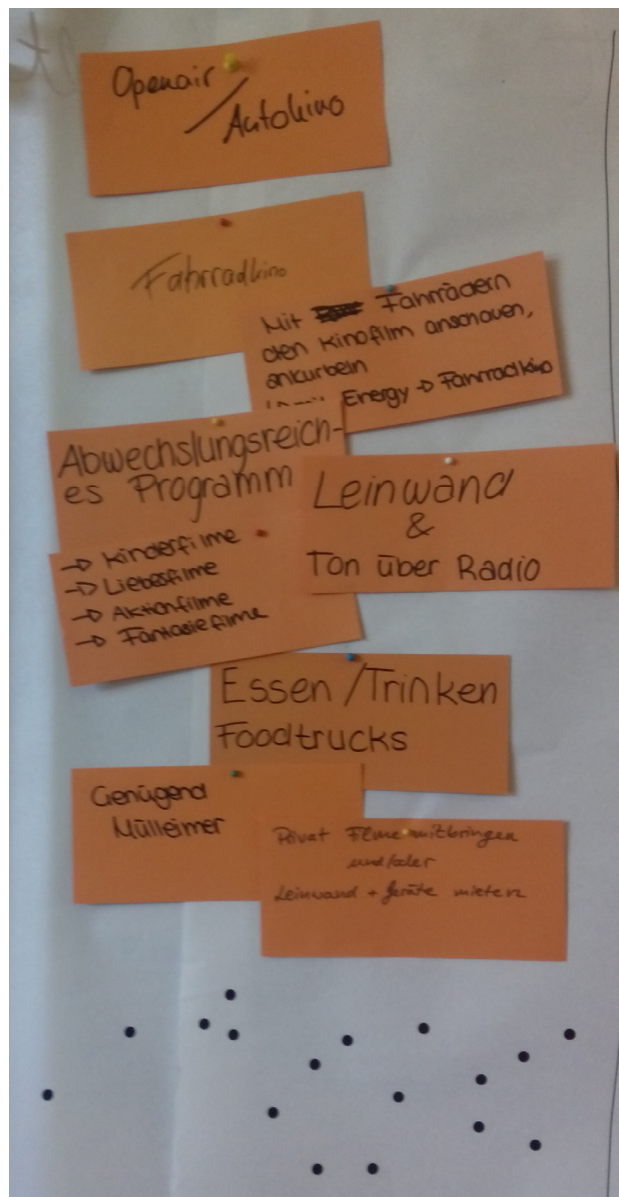 Openair
/ Autokino
Fahrradkino
Mit Fahrrädern
den Kinofilm anschauen,
ankurbeln
Energy → Fahrradkino
Abwechslungsreich-
es Programm
→ Kinderfilme
→ Liebesfilme
→ Aktionfilme
→ Fantasiefilme
Leinwand
&
Ton über Radio
Essen / Trinken
Foodtrucks
Genügend
Mülleimer
Privat Filme mitbringen
und/oder
Leinwand + Geräte mieten